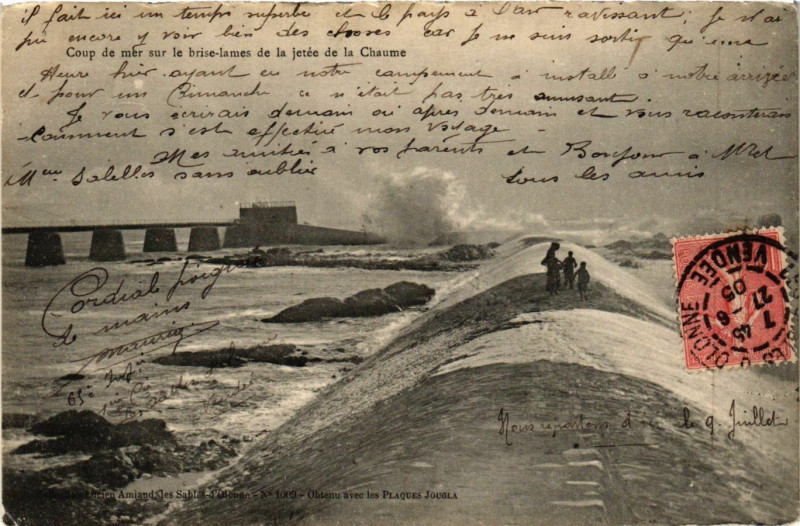 il fait ici un temps superbe et le pays a l'air ravissant, je n'ai
pu encore y voir bien des choses car je ne suis sorti qu'une
Coup de mer sur le brise-lames de la jetée de la Chaume
Heure hier ayant eu notre campement à installé à notre arrivée
et pour un Dimanche ce n'était pas très amusant.
Je vous écrirais demain ou après demain et vous raconterais
comment s'est effectué mon voyage
Mes amitiés à vos parents et Bonjour à Mr et
Mme Salelles sans oublier tous les amis
Cordial poignée
de mains
Maurice
65e Infie
Sables
Vendée
Nous repartons d'ici le 9 Juillet
OLONNE
VENDEE
27
6
05
Lucien Amiaud, les Sables-d'Olonne - N° 1009 - Obtenu avec les PLAQUES JOUGLA